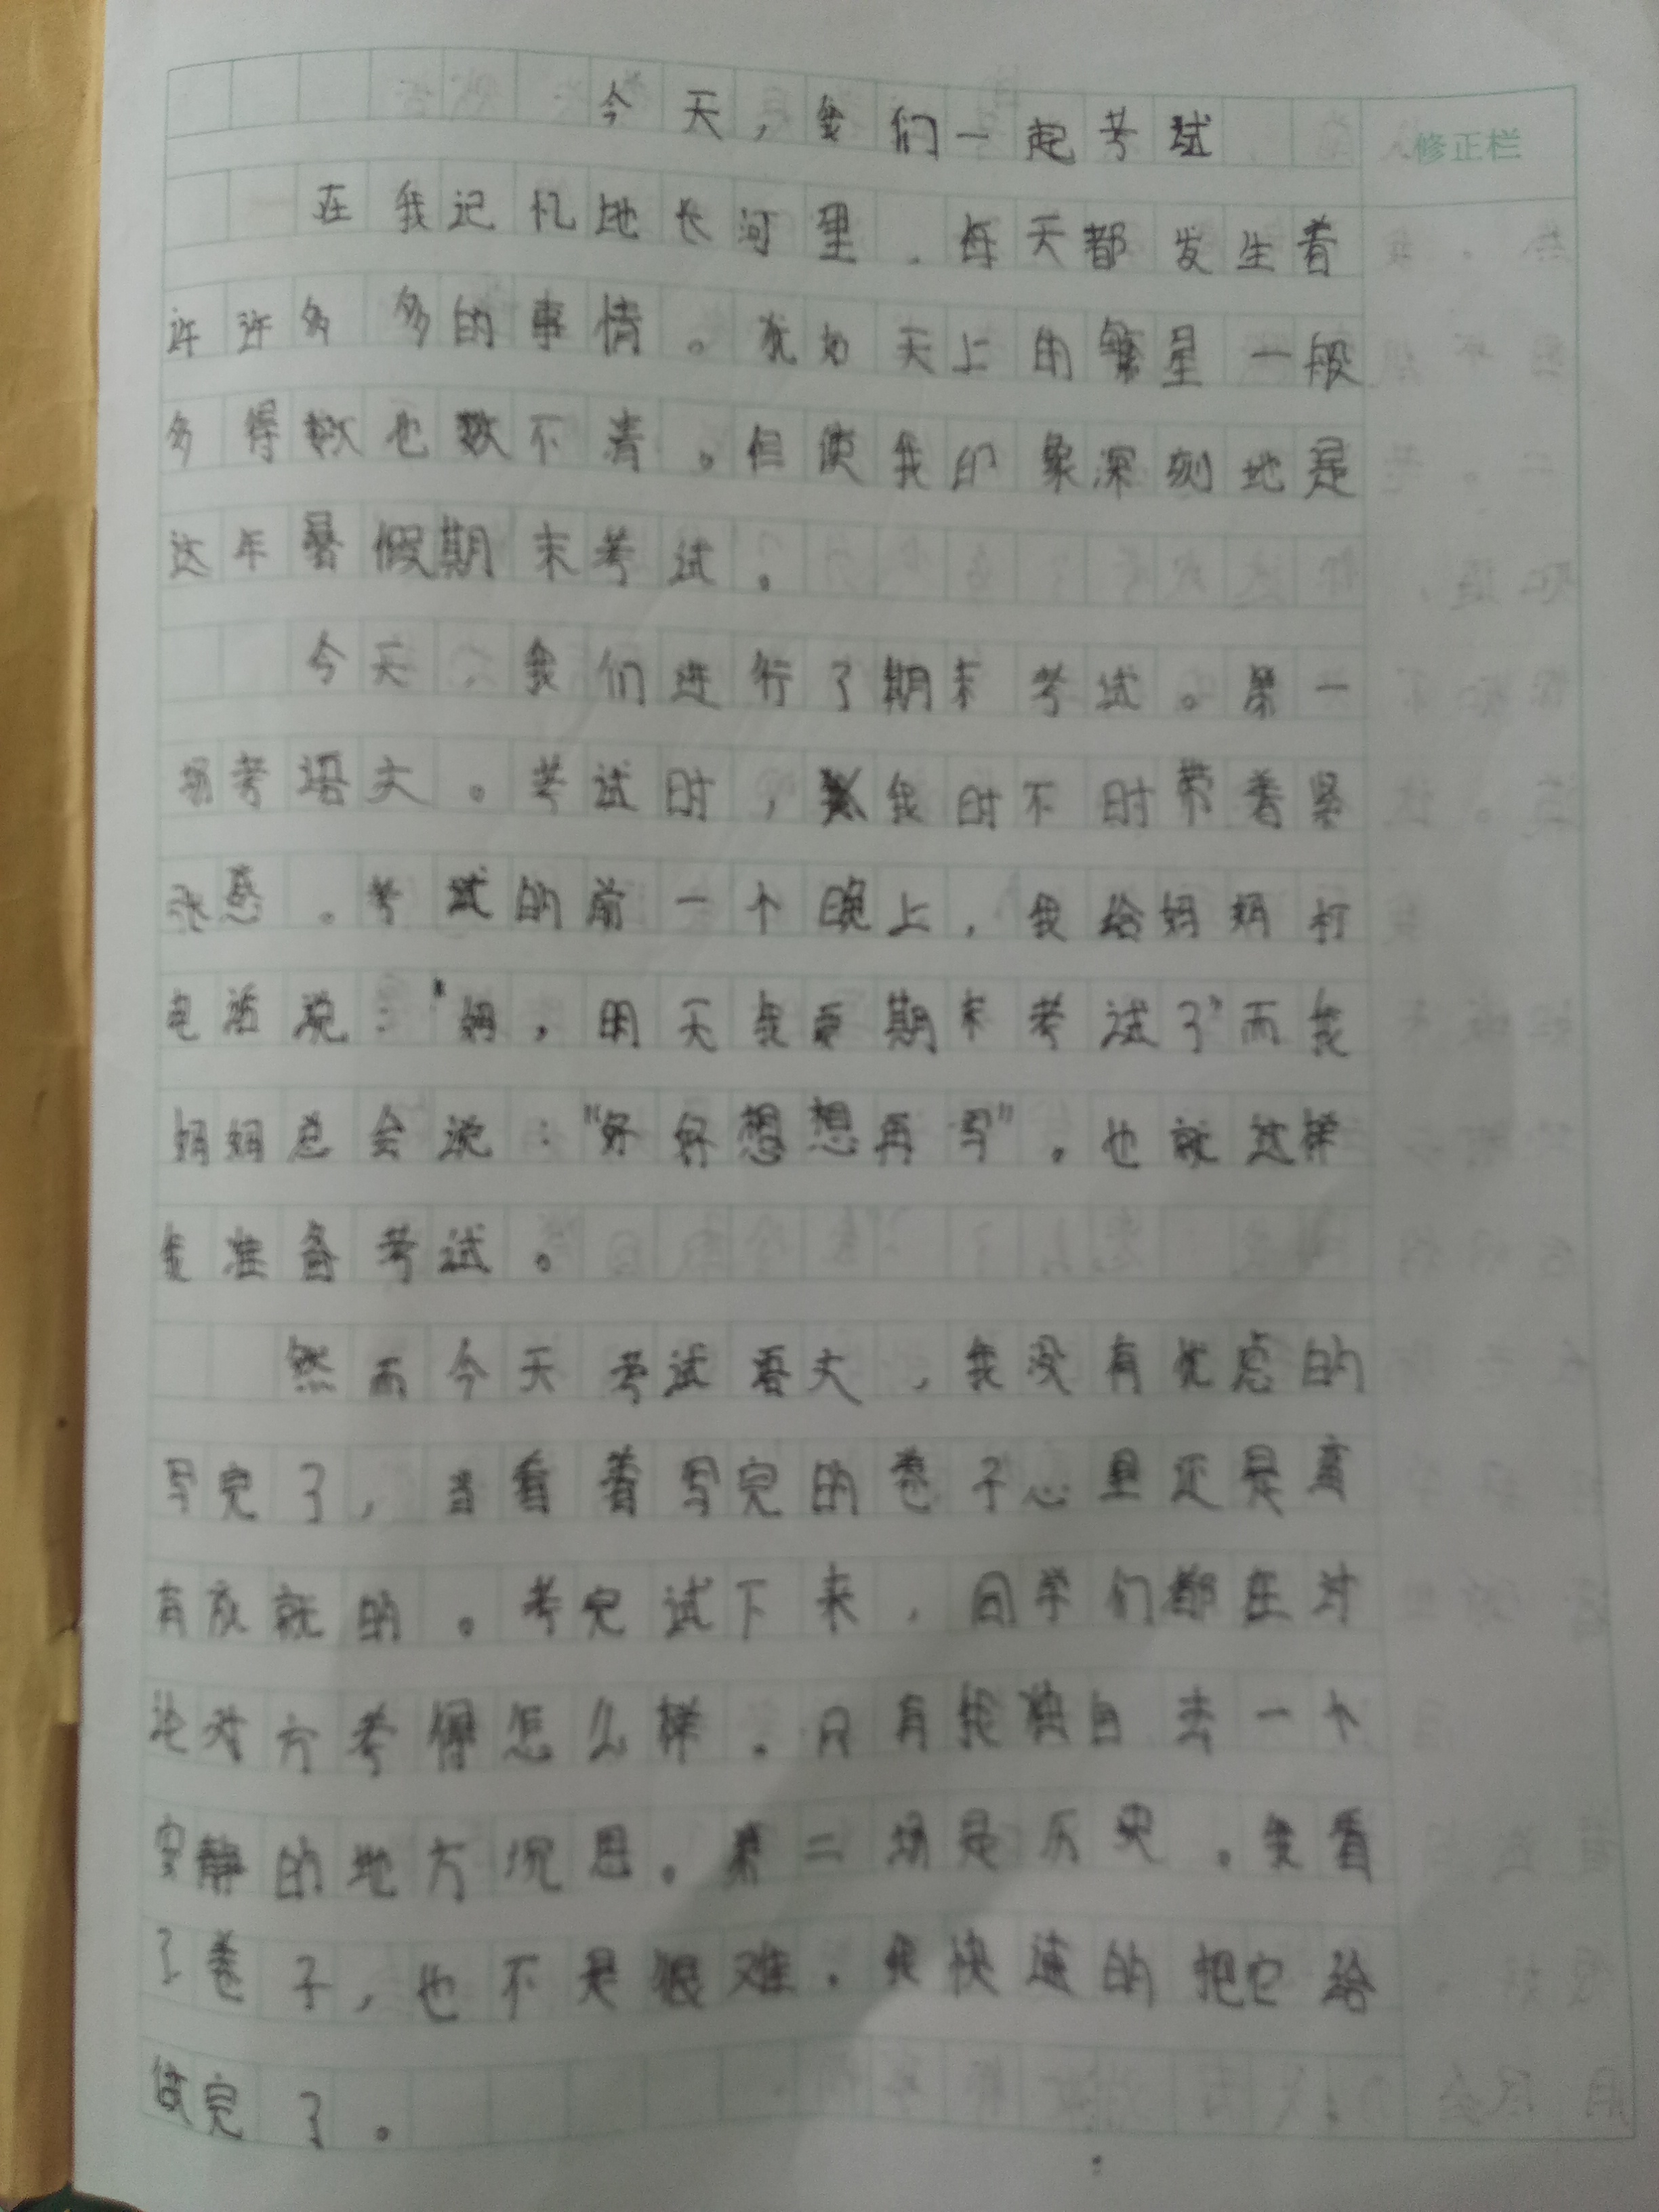 今天，我们一起考试
修正栏
在我记忆地长河里，每天都发生着
许许多多的事情。犹如天上的繁星一般
多得数也数不清。但使我印象深刻地是
这年暑假期末考试。
今天，我们进行了期末考试。第一
场考语文。考试时，我时不时带着紧
张感。考试的前一个晚上，我给妈妈打
电话说："妈，明天我要期末考试了"而我
妈妈总会说："好好想想再写"。也就这样
我准备考试。
然而今天考试语文，我没有忧虑的
写完了，当看着写完的卷子心里还是蛮
有成就的。考完试下来，同学们都在讨
论对方考得怎么样。只有我独自去一个
安静的地方沉思。第二场是历史。我看
了卷子，也不是很难。我快速的把它给
做完了。